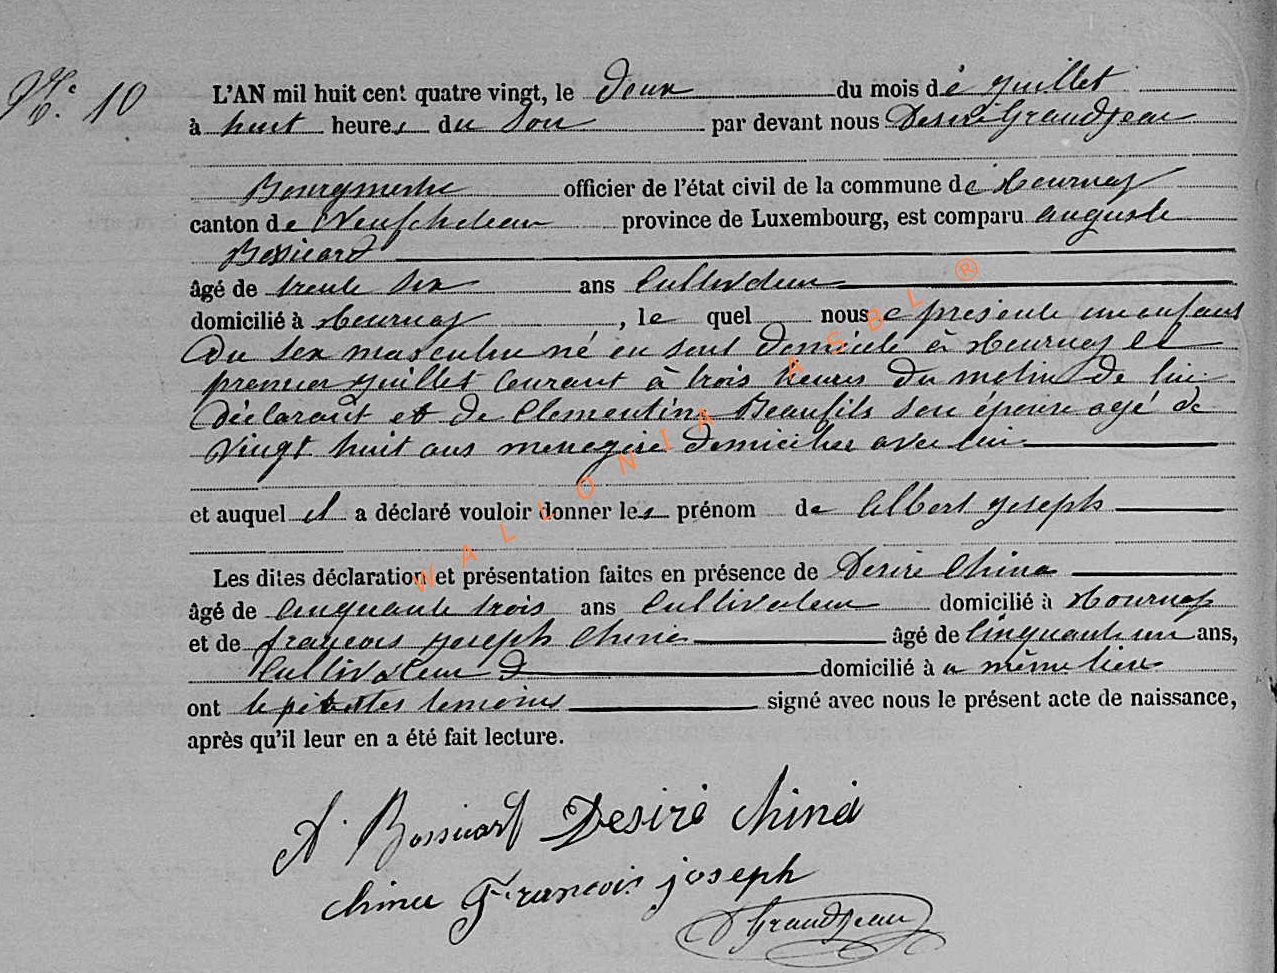 N° 10
L'AN mil huit cent quatre vingt, le deux du mois de juillet
à huit heures du soir par devant nous Desiré Grandjean
Bourgmestre officier de l'état civil de la commune de Tournay
canton de Neufchateau province de Luxembourg, est comparu auguste
Bossicart
âgé de trente six ans Cultivateur
domicilié à Tournay, le quel nous a présenté un enfant
du sex masculin né en sont domicile à Tournay le
premier juillet courant à trois heures du matin de lui
déclarant et de Clementine Beaufils son épouse agé de
vingt huit ans menagère domicilier avec lui
et auquel il a déclaré vouloir donner les prénom de Albert joseph
Les dites déclaration et présentation faites en présence de Desiré Chine
âgé de cinquante trois ans Cultivateur domicilié à Tournay
et de françois joseph Chine âgé de Cinquante un ans,
Cultivateur domicilié à même lieu
ont le témoins signé avec nous le présent acte de naissance,
après qu'il leur en a été fait lecture.
A. Bossicart Desiré chiné
chine François joseph
D Grandjean
WALLONIA ASBL ®